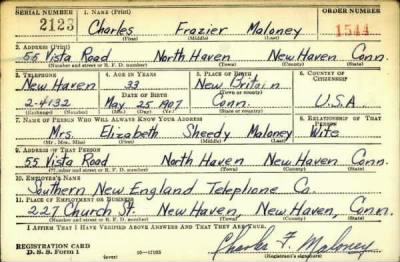 SERIAL NUMBER 1. NAME (Print) ORDER NUMBER
2123 Charles Frazier Maloney 1544
(First) (Middle) (Last)
2. ADDRESS (Print)
55 Vista Road North Haven New Haven Conn.
(Number and street or R. F. D. number) (Town) (County) (State)
3. TELEPHONE 4. AGE IN YEARS 5. PLACE OF BIRTH 6. COUNTRY OF CITIZENSHIP
New Haven 33 New Britain
DATE OF BIRTH (Town or county)
2-4132 May 25 1907 Conn. U.S.A.
(Exchange) (Number) (Mo.) (Day) (Yr.) (State or country)
7. NAME OF PERSON WHO WILL ALWAYS KNOW YOUR ADDRESS 8. RELATIONSHIP OF THAT PERSON
Mrs. Elizabeth Sheedy Maloney Wife
(Mr., Mrs., Miss) (First) (Middle) (Last)
9. ADDRESS OF THAT PERSON
55 Vista Road North Haven New Haven Conn.
(Number and street or R. F. D. number) (Town) (County) (State)
10. EMPLOYER'S NAME
Southern New England Telephone Co.
11. PLACE OF EMPLOYMENT OR BUSINESS
227 Church St. New Haven, New Haven, Conn.
(Number and street or R. F. D. number) (Town) (County) (State)
I AFFIRM THAT I HAVE VERIFIED ABOVE ANSWERS AND THAT THEY ARE TRUE.
REGISTRATION CARD Charles F. Maloney
D. S. S. Form 1 (over) (Registrant's signature)